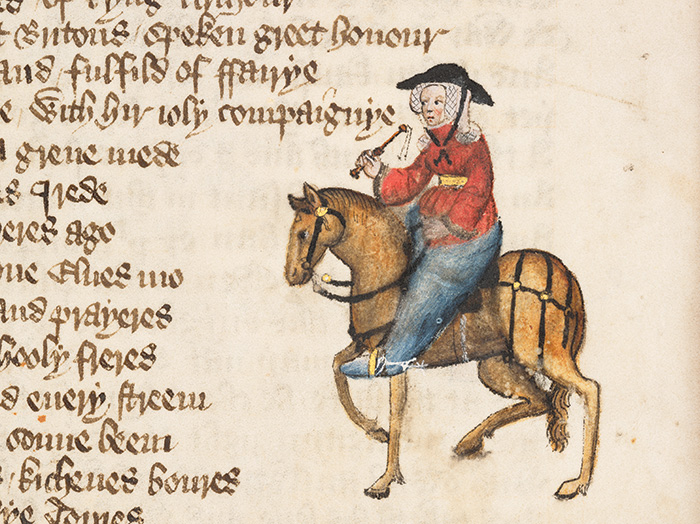 of kyng Arthour
Britons / speken greet honour
and fulfild of ffairye
with hir ioly compaignye
grene mede
I rede
yeres ago
Elues mo
and prayeres
hooly freres
euery streem
sonne beem
kichenes boures
hye Toures